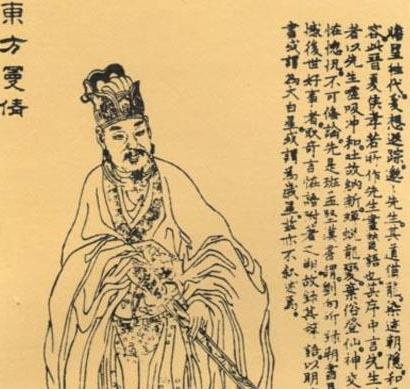 瞻望往代爰想遐蹤邈〻先生其道猶龍染迹朝隱和
容此晉夏侯孝若所作先生畫贊語也其序中言先生
者以先生噓吸冲和吐故納新蟬蛻龍變棄俗登仙神交
不可備論先是班孟堅漢書謂劉向所錄朔書具
後世好事者取奇言怪語附著之朔故錄其
書或謂為太白星或謂為歲星茲亦不
東方曼倩